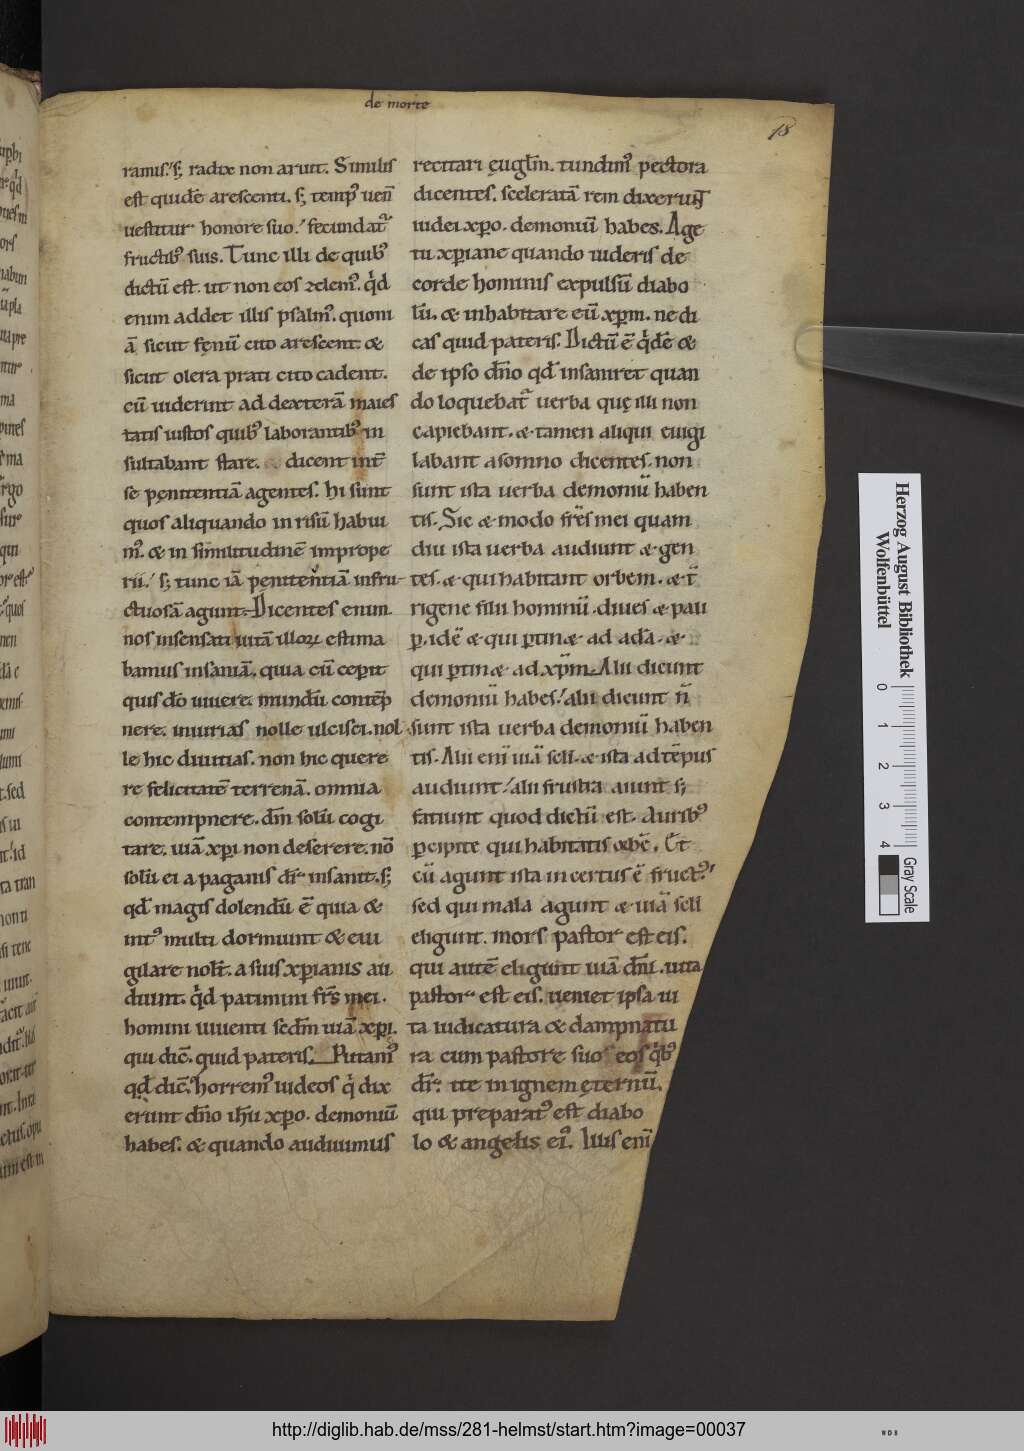 de morte
18
ramis.' s; radix non aruit. Similis
est quidē arescenti. s; tempꝰ uen̄
uestitur honore suo.' fecundat᷑
fructibꝰ suis. Tunc illi de quibꝰ
dictū est. ut non eos zelemꝰ. qͥd
enim addet illis psalmꝰ. quoni
ā sicut fęnū cito arescent. &
sicut olera prati cito cadent.
cū uiderint ad dexterā maies
tatis iustos quibꝰ laborantibꝰ in
sultabant stare. dicent int̄
se pęnitentiā agentes. hi sunt
quos aliquando in risū habui
mꝰ. & in similitudinē imprope
rii.' s; tunc iā pęnitentiā infru-
ctuosā agunt. Dicentes enim
nos insensati uitā illoꝝ estima
bamus insaniā. quia cū cepit
quis dō uiuere. mundū contēp
nere. iniurias nolle ulcisci. nol
le hic diuitias. non hic quere
re felicitatē terrenā. omnia
contempnere. dm̄ solū cogi
tare. uiā xp̄i non deserere. nō
solū ei a paganis dr̄ insanit. s;
qd̄ magis dolendū ē quia &
intꝰ multi dormiunt & eui
gilare nolt̄. a suis xp̄ianis au
diunt. qͥd patimini fr̄s mei.
homini uiuenti sedm̄ uiā xp̄i.
qui dic̄. quid pateris. Putamꝰ
qd̄ dic̄. horremꝰ iudeos qͥ dix
erunt dn̄o ih̄u xp̄o. demoniū
habes. & quando audiuimus
recitari ęugl̄m. tundimꝰ pectora
dicentes. sceleratā rem dixerunt
iudei xp̄o. demoniū habes. Age
tu xp̄iane quando uideris de
corde hominis expulsū diabo
lū. & inhabitare eū xp̄m. ne di
cas quid pateris. Dictū ē qͥdē &
de ipso dn̄o qd̄ insaniret quan
do loquebat᷑ uerba quę illi non
capiebant. & tamen aliqui euigi
labant a somno dicentes. non
sunt ista uerba demoniū haben
tis. Sic & modo fr̄es mei quam
diu ista uerba audiunt & gen
tes. & qui habitant orbem. & t̄
rigene filii hominū. diues & pau
ꝑ. idē & qui ꝑtin& ad adā. &
qui ꝑtin& ad xp̄m. Alii dicunt
demoniū habes.' alii dicunt n̄
sunt ista uerba demoniū haben
tis. Alii enī uiā seli. & ista ad tēpus
audiunt.' alii frustra aiunt s;
fatiunt quod dictū est. Auribꝰ
ꝑcipite qui habitatis orbē. Et
cū agunt ista in certus ē fructꝰ.'
sed qui mala agunt & uiā seli
eligunt. mors pastor est eis.
qui autē eligunt uiā dn̄i. uita
pastor est eis. ueniet ipsa ui
ta iudicatura & dampnatu
ra cum pastore suo eos qͥbꝰ
dr̄. ite in ignem ęternū.
qui preparatꝰ est diabo
lo & angelis eiꝰ. Illis enī
Herzog August Bibliothek
Wolfenbüttel
0 1 2 3 4
Gray Scale
http://diglib.hab.de/mss/281-helmst/start.htm?image=00037
WDB